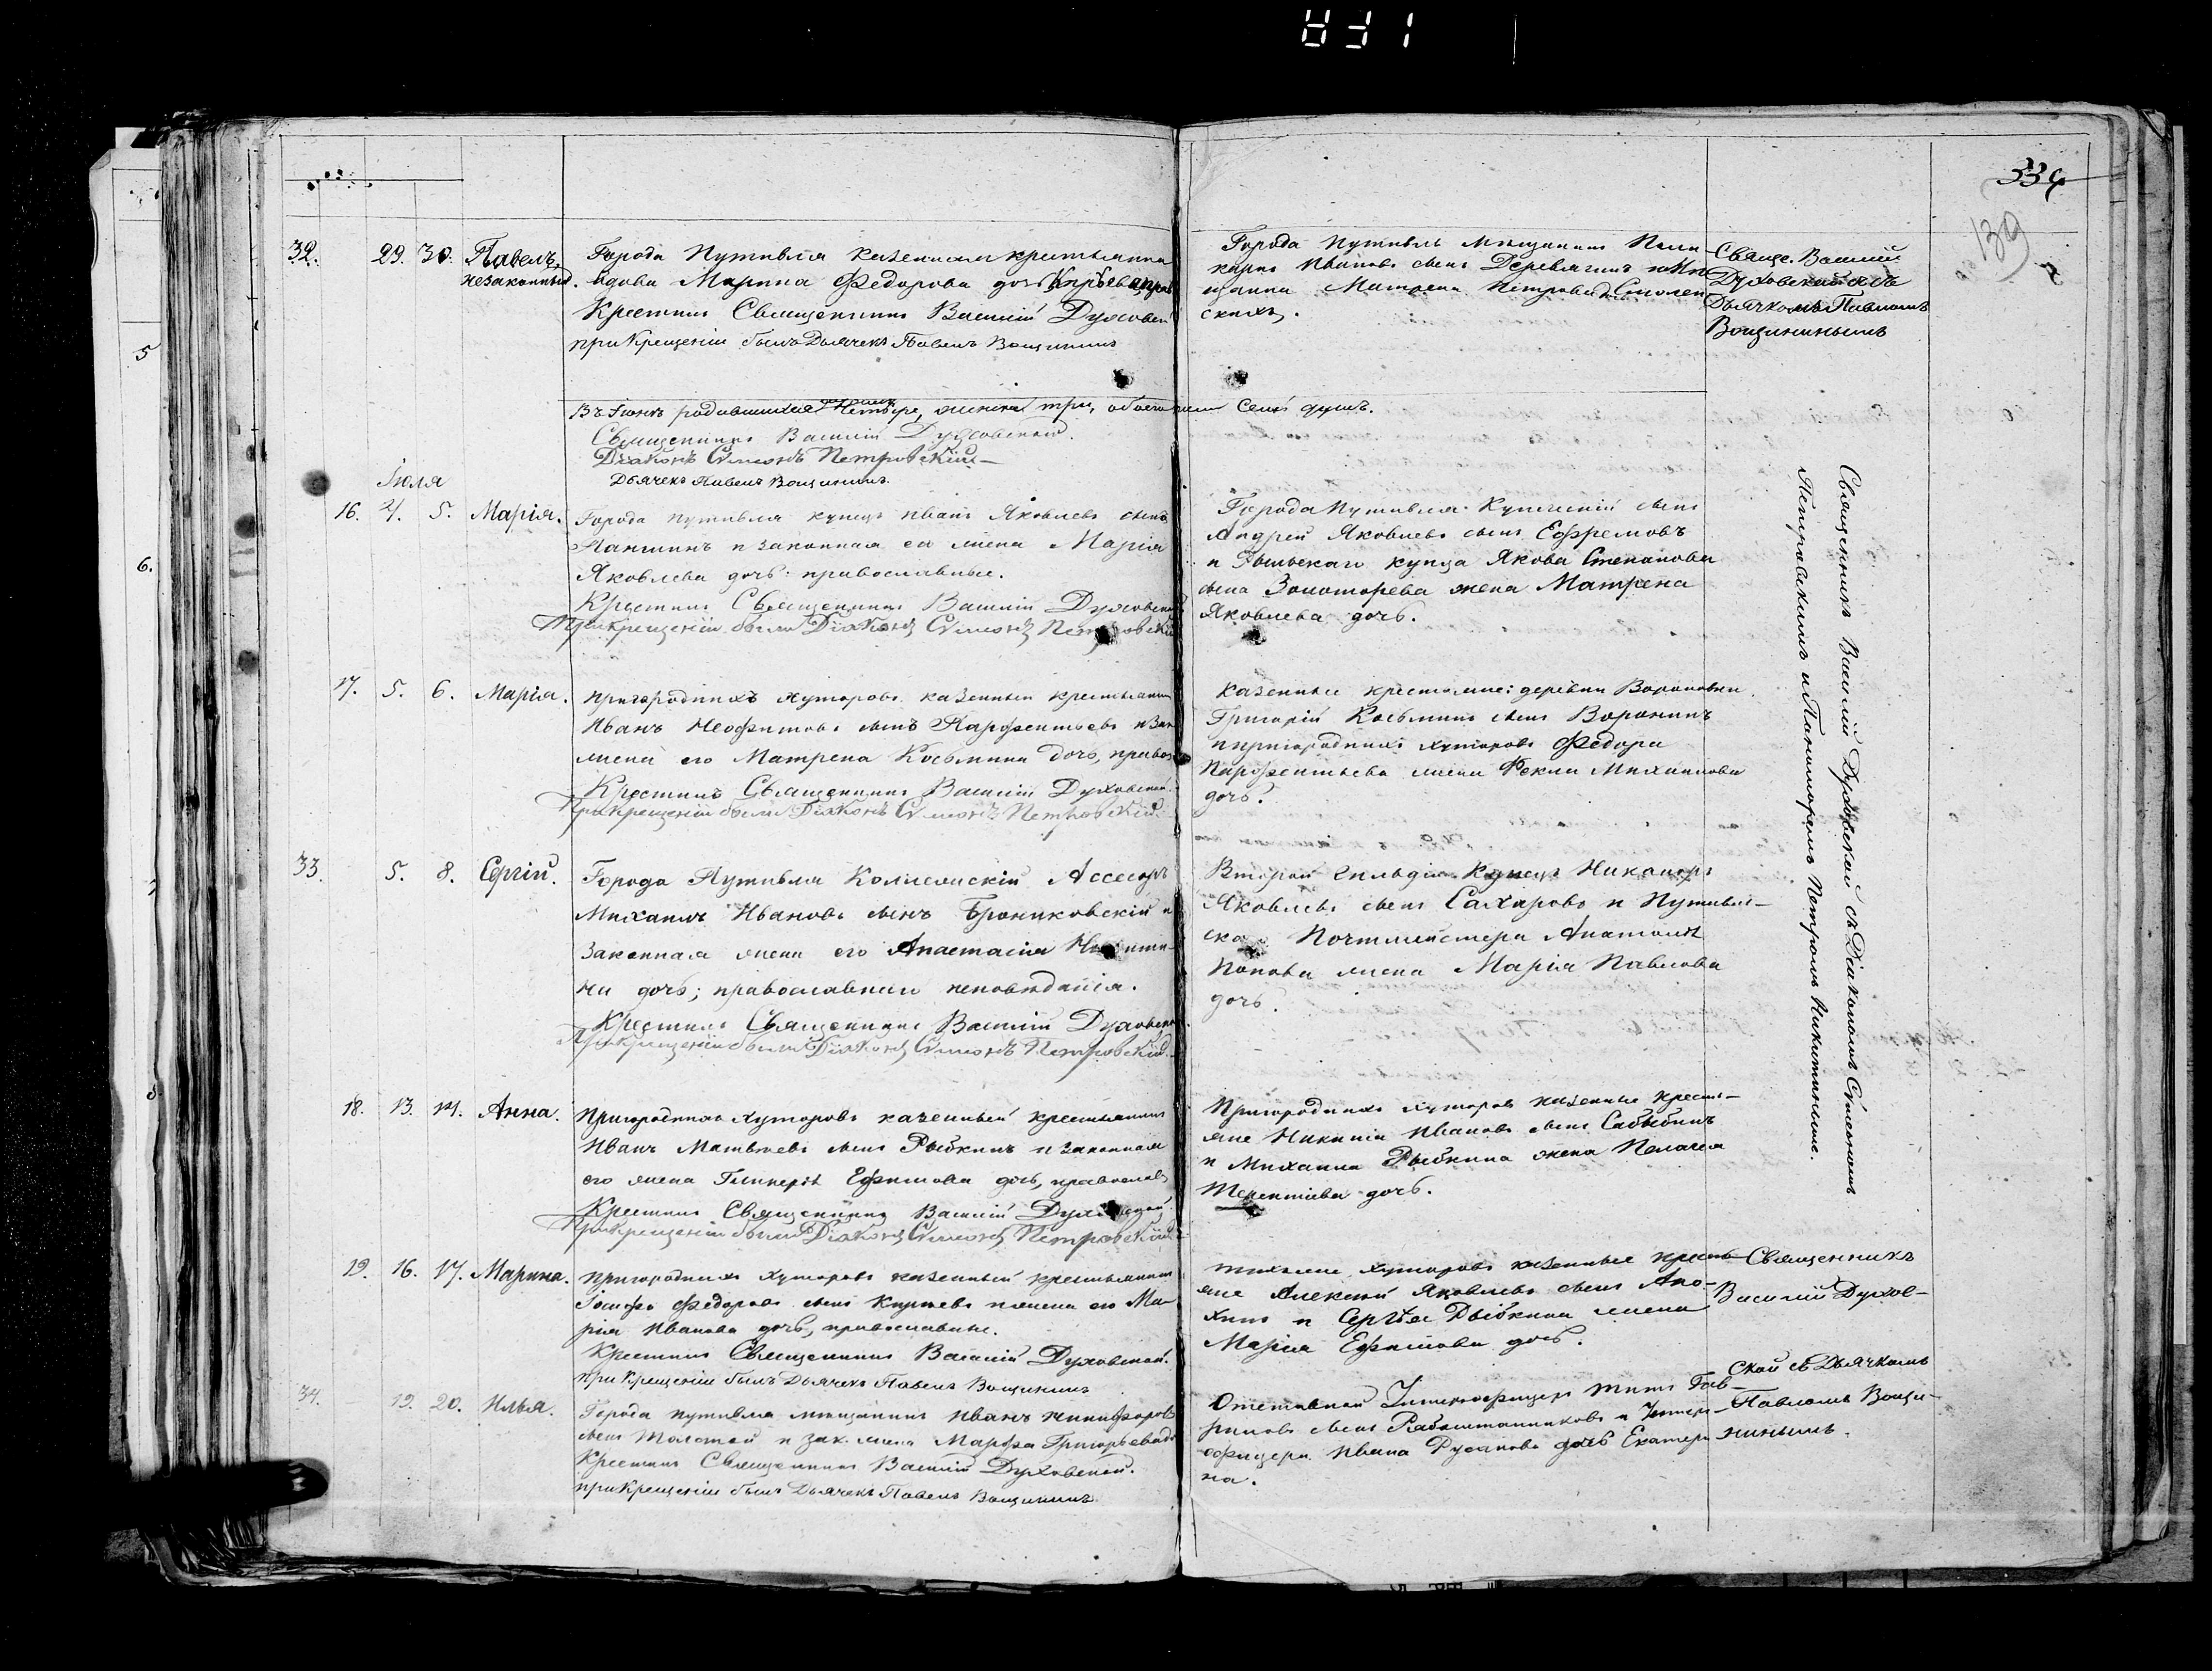 339
139
32. 29. 30. Павелъ, незаконный.
Города Путивля казенная крестьянка
вдова Марина Федорова дочь Кирѣева, прав
Крестилъ Священникъ Василій Духовской
при Крещеніи былъ Дьячекъ Павелъ Вощининъ
Города Путивль мѣщанинъ Поли-
карпъ Ивановъ сынъ Деревягинъ и Мѣ
щанка Матрена Петрова
скихъ.
Свяще. Василій
Духовской съ
Дьячкомъ Павломъ
Вощининымъ
Въ Іюнѣ родившихся мужеска четыре, женска три, обоего пола семь душъ.
Священникъ Василій Духовской.
Діаконъ Симеонъ Петровскій
Дьячекъ Павелъ Вощининъ
Іюля
16. 4. 5. Марія.
Города Путивля купецъ Иванъ Яковлевъ сынъ
и законная ея жена Марія
Яковлева дочь: православные.
Крестилъ Священникъ Василій Духовской
При Крещеніи были Діаконъ Симеонъ Петровскій
Города Путивля Купеческій сынъ
Андрей Яковлевъ сынъ Ефремовъ
и Рыльскаго купца Якова Степанова
сына Золотарева жена Матрена
Яковлева дочь.
17. 5. 6. Марія.
Пригородныхъ Хуторовъ казенный крестьянинъ
Иванъ Неофитовъ сынъ Парфентьевъ и зак
жена его Матрена Косьмина дочь, правос
Крестилъ Священникъ Василій Духовской.
При Крещеніи были Діаконъ Симеонъ Петровскій.
Казенные крестьяне: деревни Вороновки
Григорій Косьминъ сынъ Воронинъ
и пригородныхъ хуторовъ Федора
Парфентьева жена Фекла Михаилова
дочь.
33. 5. 8. Сергій.
Города Путивля Коллежскій Ассесоръ
Михаилъ Ивановъ сынъ Брониковскій и
законная жена его Анастасія
на дочь; православнаго исповѣданія.
Крестилъ Священникъ Василій Духовской
При Крещеніи были Діаконъ Симеонъ Петровскій.
Второй гильдіи Купецъ Никаноръ
Яковлевъ сынъ Сахаровъ и Путивль-
ско Почтмейстера Анатолія
Попова жена Марія Павлова
дочь.
18. 13. 14. Анна.
Пригородныхъ Хуторовъ казенный крестьянинъ
Иванъ Матвѣевъ сынъ Рыбкинъ и законная
его жена Гликерія Ефимова дочь, православ
Крестилъ Священникъ Василій Духовской
При Крещеніи были Діаконъ Симеонъ Петровскій
Пригородныхъ хуторовъ казенные кресть-
яне Никита Ивановъ сынъ
и Михаила Рыбкина жена Пелагея
Терентіева дочь.
Священникъ Василій Духовской съ Діакономъ Симеономъ
Петровскимъ и Пономаремъ Петромъ Никитинымъ.
19. 16. 17. Марина.
Пригородныхъ Хуторовъ казенный крестьянинъ
Іосифъ Федоровъ сынъ Кирѣевъ и жена его Ма-
рія Иванова дочь, православные.
Крестилъ Священникъ Василій Духовской.
при Крещеніи былъ Дьячекъ Павелъ Вощининъ
тѣхже хуторовъ казенные кресть-
яне Алексѣй Яковлевъ сынъ Ано-
хинъ и Сергѣя Рыбкина жена
Марія Ефимова дочь.
Священникъ
Василій Духов-
ской съ Дьячкомъ
Павломъ Вощи-
нинымъ.
34. 19. 20. Илья.
Города Путивля мѣщанинъ Иванъ Никифоровъ
сынъ Толстой и зак. жена Марфа Григорьева д
Крестилъ Священникъ Василій Духовской.
при Крещеніи былъ Дьячекъ Павелъ Вощининъ
Отставной Унтерофицеръ Титъ Гав-
риловъ сынъ и Унтеръ
офицера Ивана Русанова дочь Екатери
на.